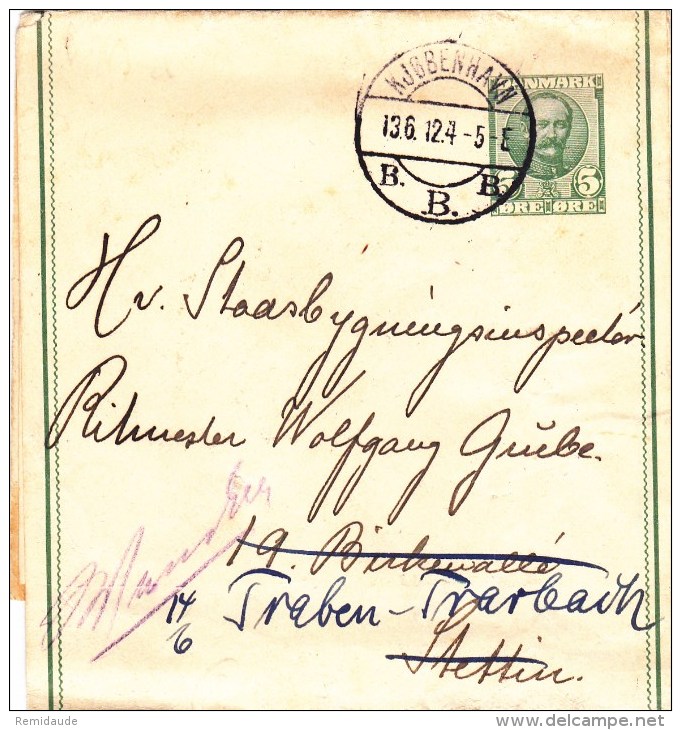 KJØBENHAVN
13.6.12.4-5-E
B. B. B.
DANMARK
5 5
ØRE ØRE
Hr. Staasbygningsinspectör
Ritmester Wolfgang Grübe.
19. Birkenallé
14/6 Traben-Trarbach
Stettin.
Remidaude
www.delcampe.net